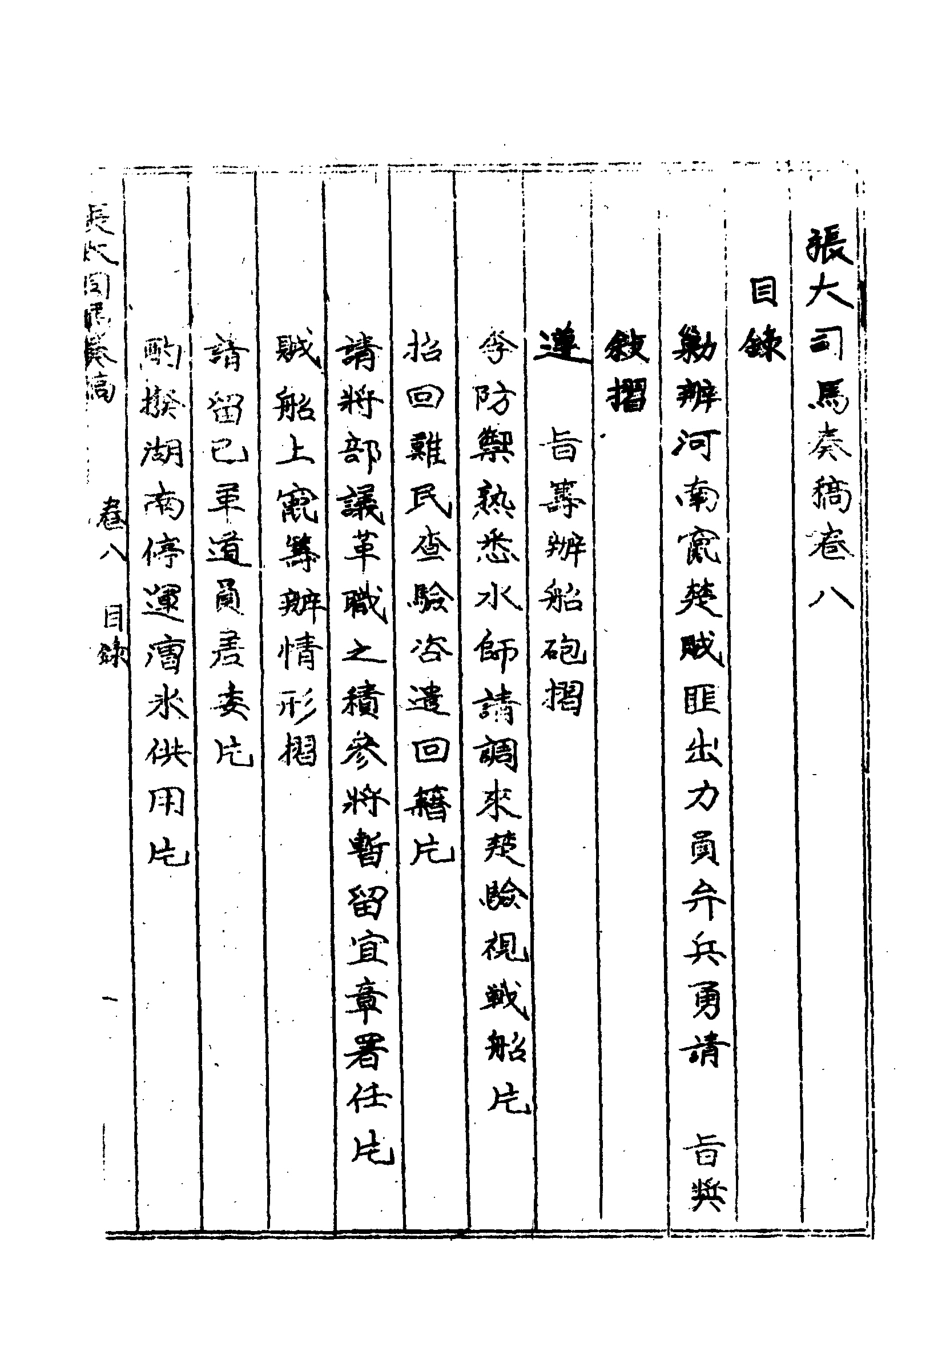 張大司馬奏稿卷八
目錄
勦辦河南竄楚賊匪出力員弁兵勇請 旨獎
敘摺
遵 旨籌辦船砲摺
李防禦熟悉水師請調來楚驗視戰船片
招回難民查驗咨遣回籍片
請將部議革職之積參將暫留宜章署任片
賊船上竄籌辦情形摺
請留已革道員差委片
酌撥湖南停運漕米供用片
張大司馬奏稿 卷八 目錄 一